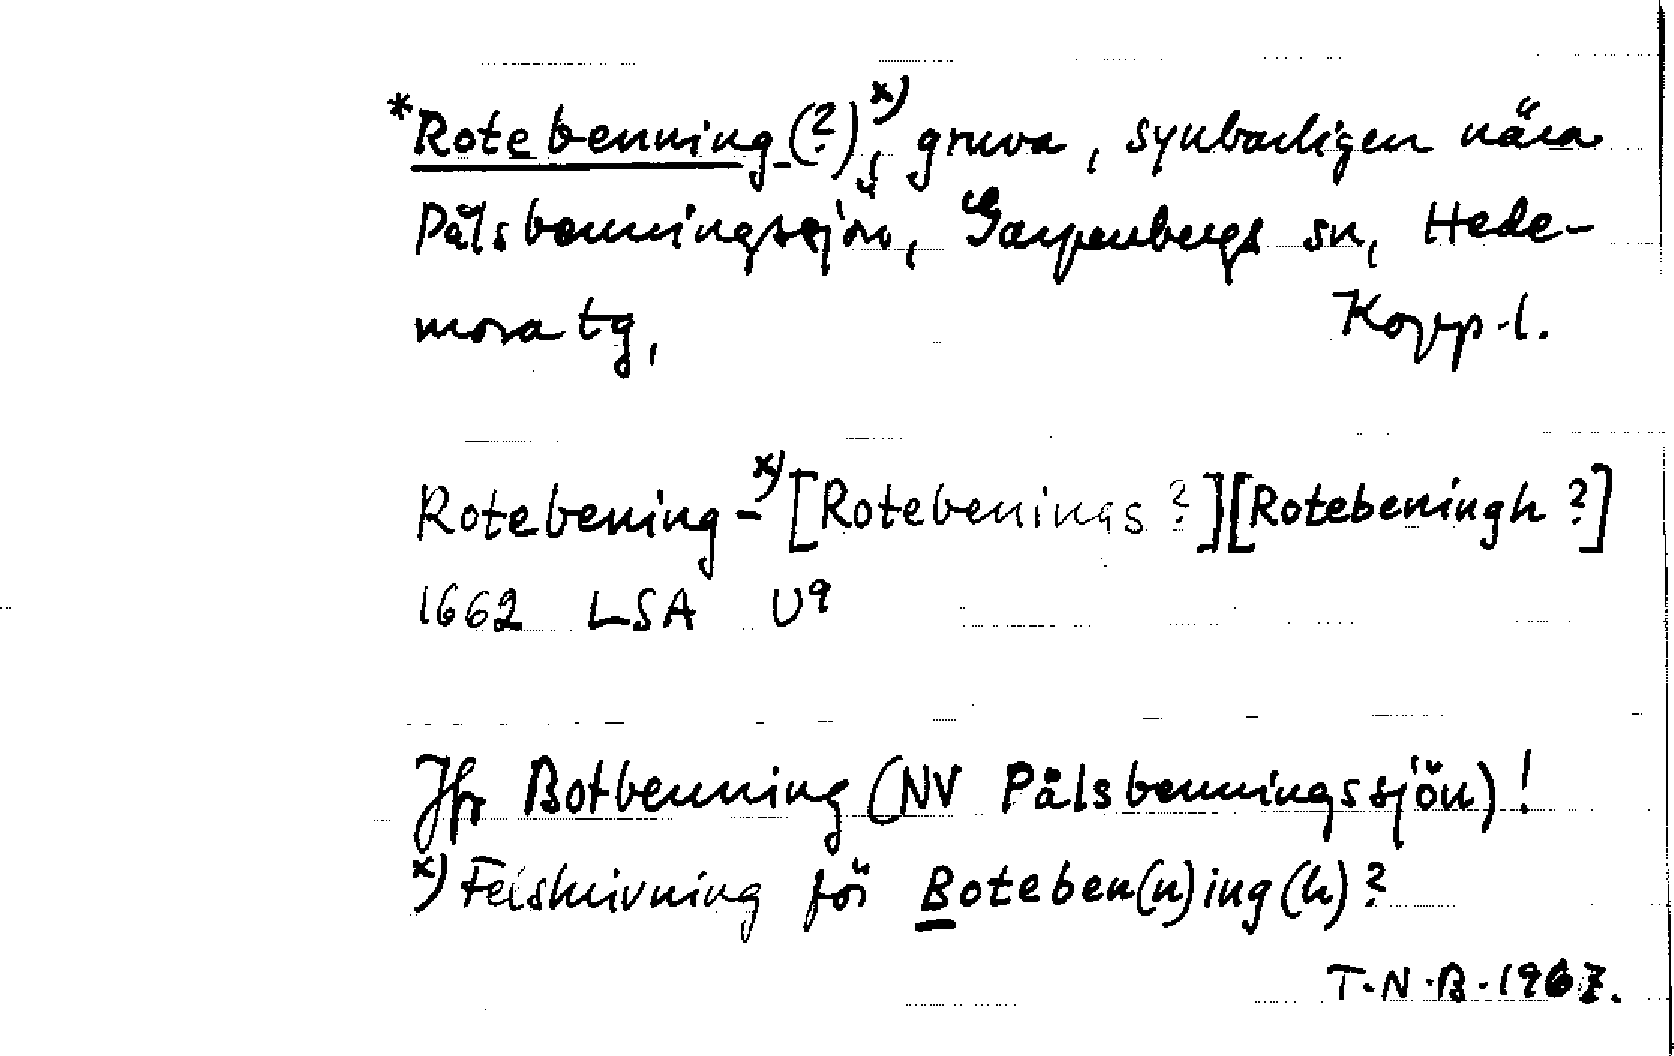 *Rotebenning(?)ˣ⁾, gruva, synbarligen nära
Pålsbenningssjön, Garpenbergs sn, Hede-
mora tg, Kopp.l.
Rotebening-ˣ⁾ [Rotebenings ?][Rotebeningh ?]
1662 LSA U⁹
Jfr Botbenning (NV Pålsbenningssjön)!
ˣ⁾ Felskrivning för Boteben(n)ing(h)?
T.N.B. 1967.